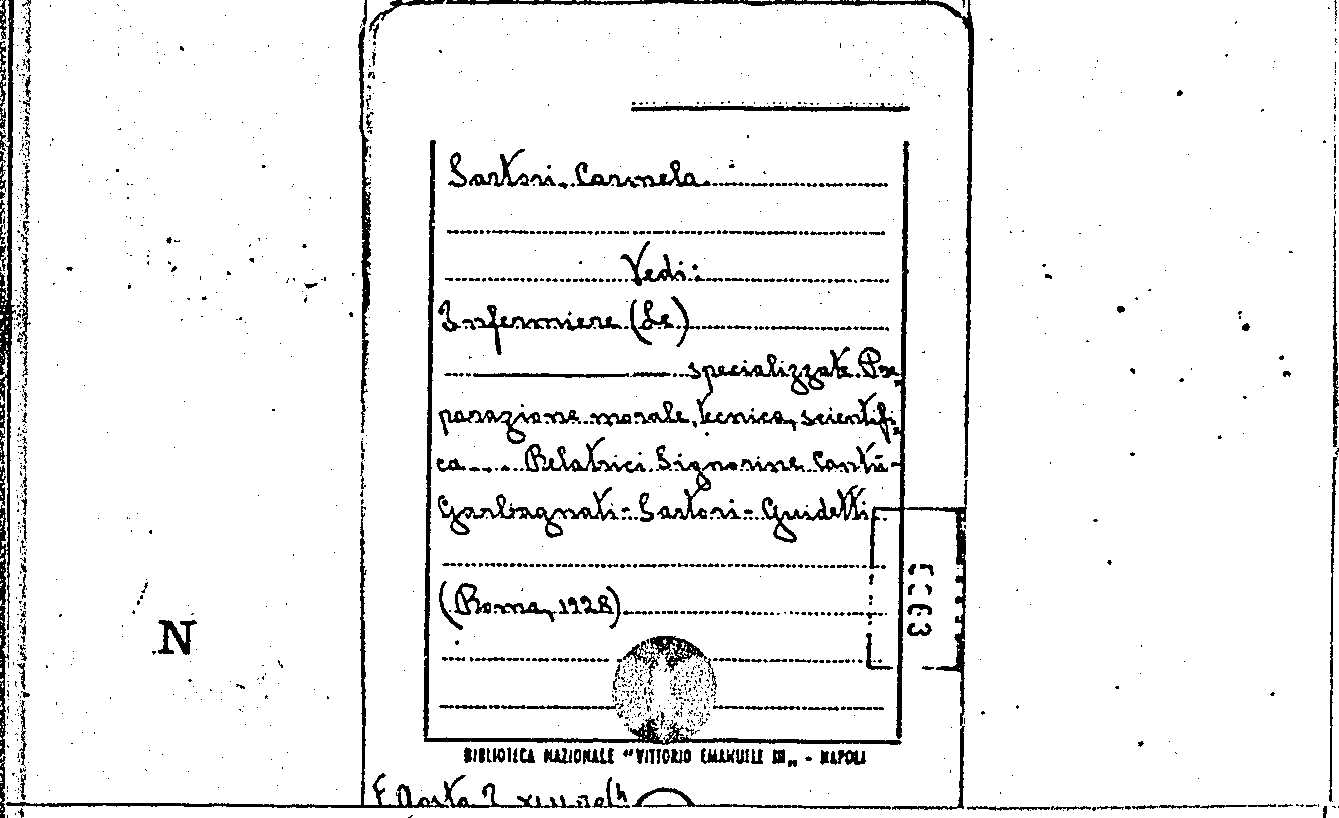 Sartori, Carmela.
Vedi:
Infermiere (Le)
specializzate. Pre=
parazione morale, tecnica, scientifi=
ca.... Relatrici Signorine Cantù-
Garbagnati-Sartori-Guidetti.
(Roma, 1928)
N
BIBLIOTECA NAZIONALE "VITTORIO EMANUELE III„ - NAPOLI